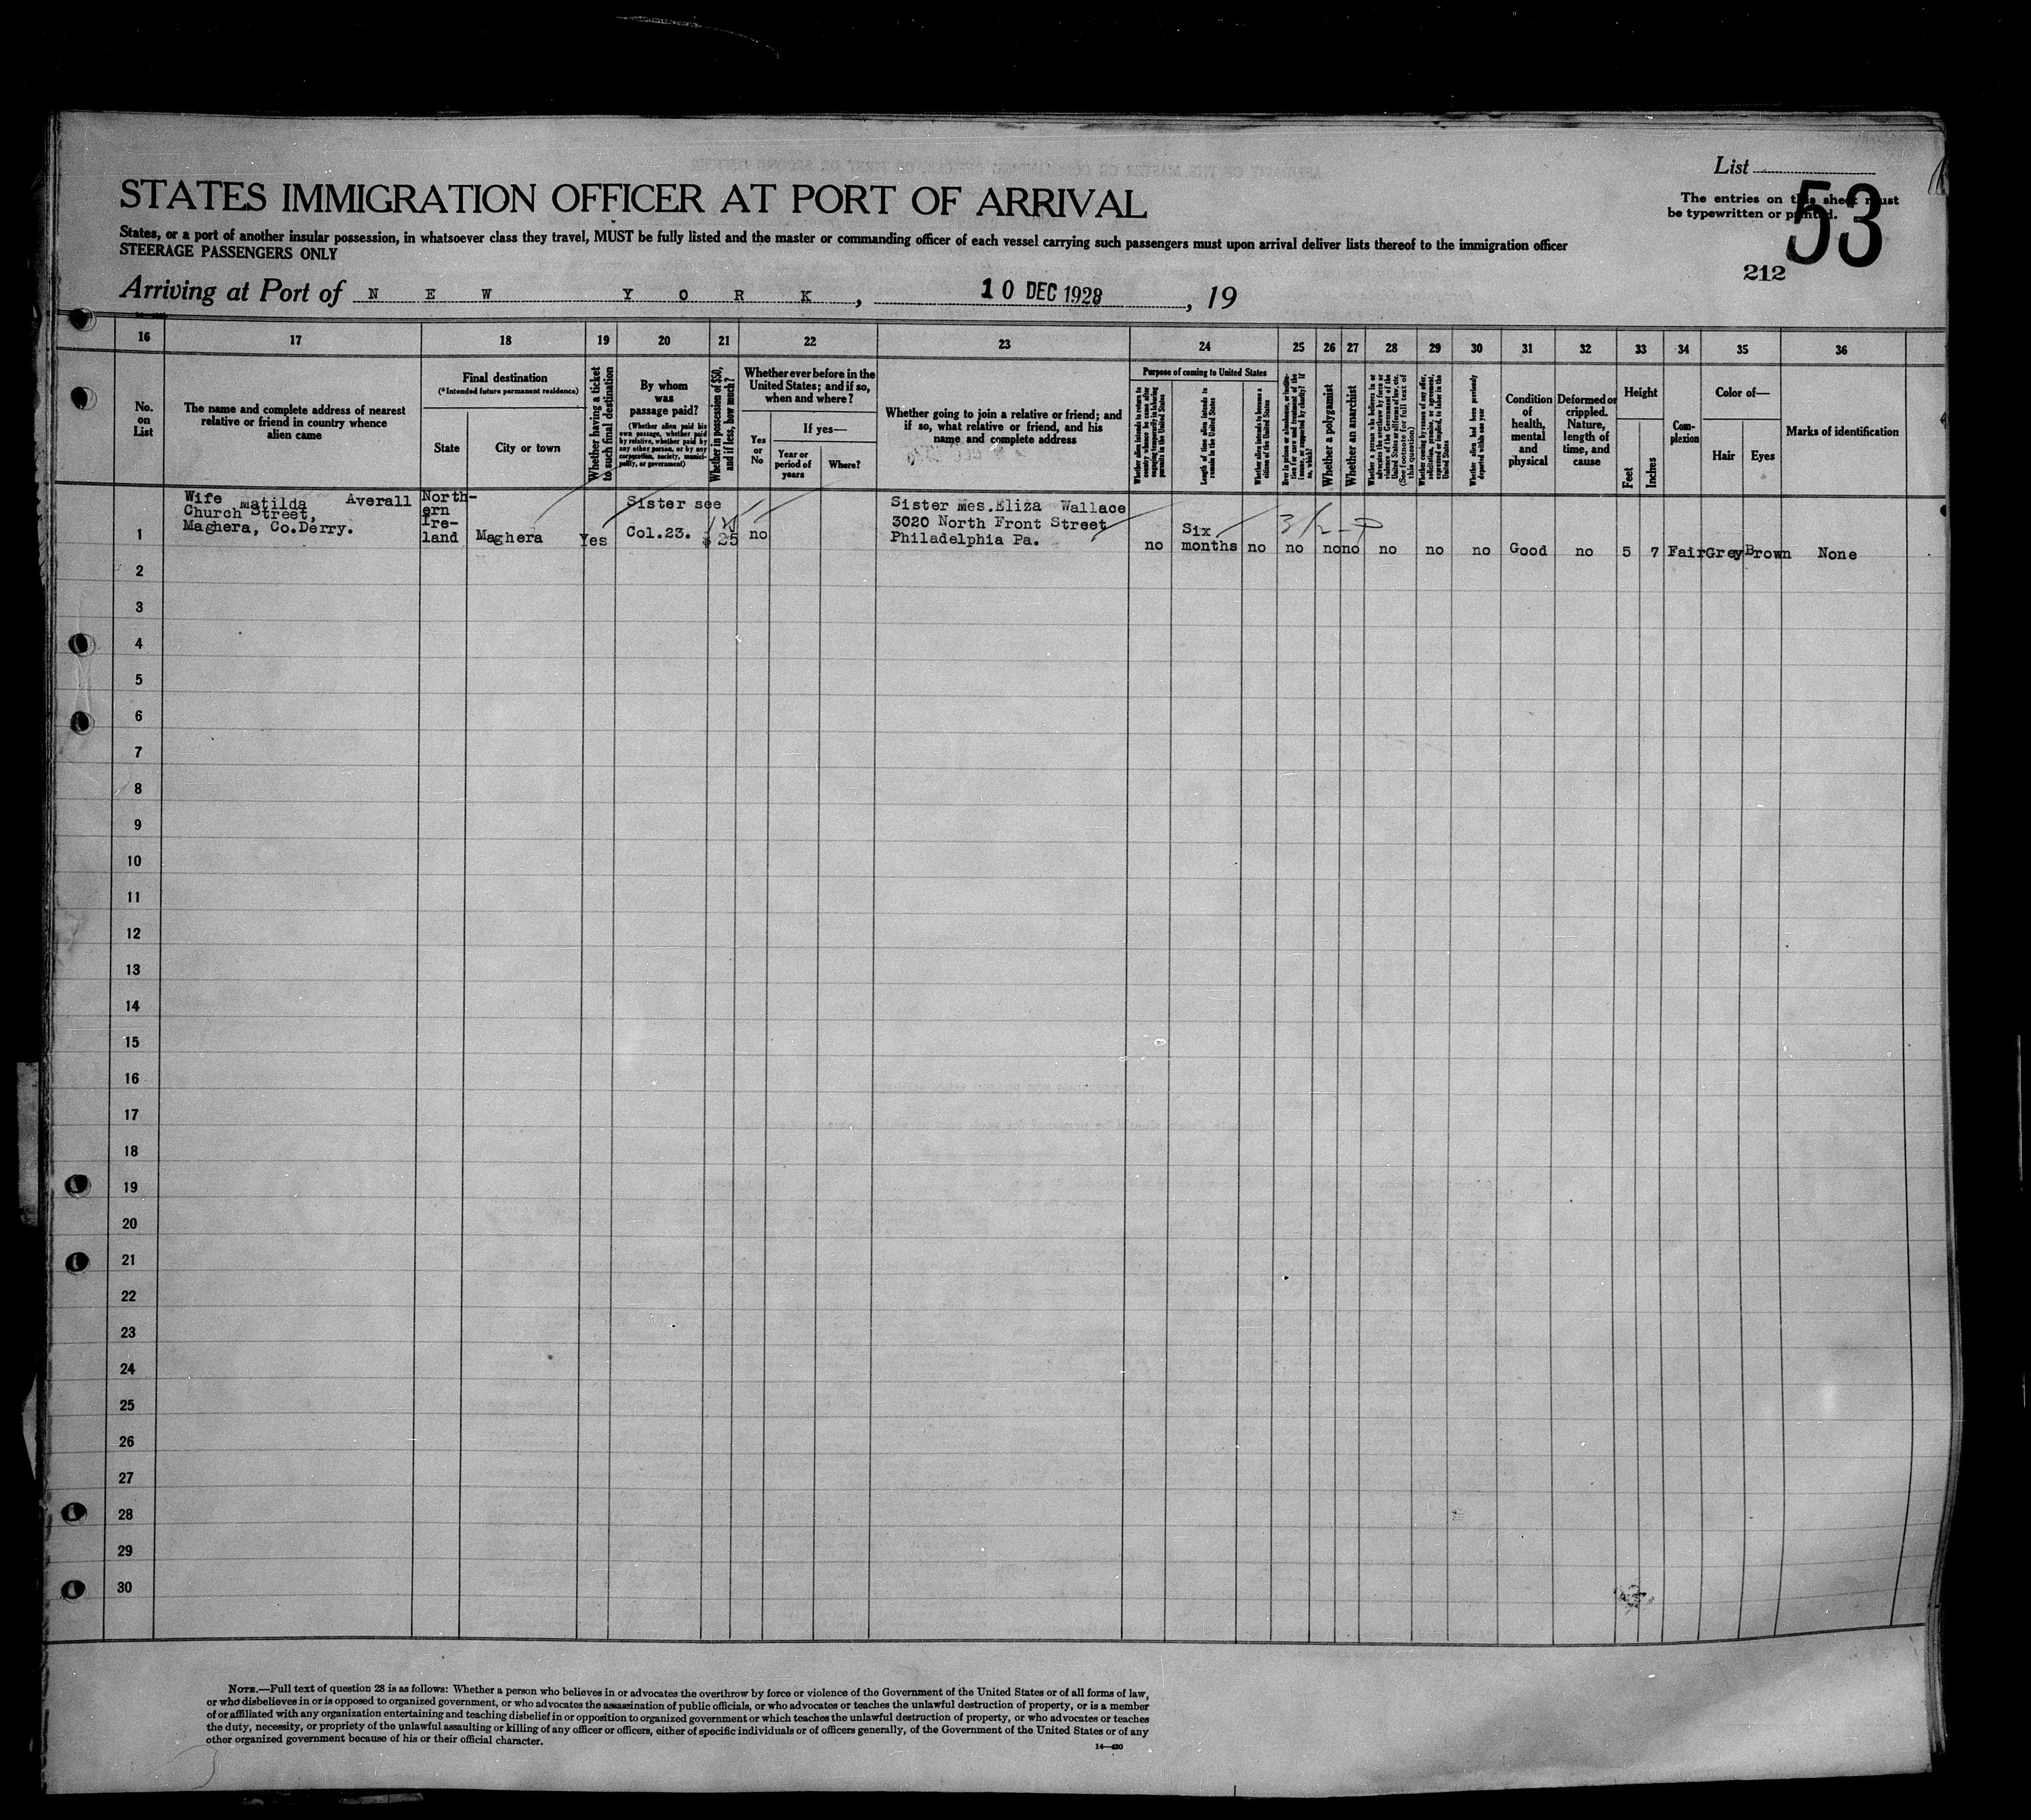 List
The entries on this sheet must
be typewritten or printed.
53
212
STATES IMMIGRATION OFFICER AT PORT OF ARRIVAL
States, or a port of another insular possession, in whatsoever class they travel, MUST be fully listed and the master or commanding officer of each vessel carrying such passengers must upon arrival deliver lists thereof to the immigration officer
STEERAGE PASSENGERS ONLY
Arriving at Port of N E W Y O R K , 10 DEC 1928 , 19
16 17 18 19 20 21 22 23 24 25 26 27 28 29 30 31 32 33 34 35 36
No.
on
List
The name and complete address of nearest
relative or friend in country whence
alien came
Final destination
(*Intended future permanent residence)
State
City or town
Whether having a ticket
to such final destination
By whom
was
passage paid?
(Whether alien paid his
own passage, whether paid
by relative, whether paid by
any other person, or by any
corporation, society, munici-
pality, or government)
Whether in possession of $50,
and if less, how much?
Whether ever before in the
United States; and if so,
when and where?
Yes
or
No
If yes—
Year or
period of
years
Where?
Whether going to join a relative or friend; and
if so, what relative or friend, and his
name and complete address
Purpose of coming to United States
Whether alien intends to return to
country whence he came after
engaging temporarily in laboring
pursuits in the United States
Length of time alien intends to
remain in the United States
Whether alien intends to become a
citizen of the United States
Ever in prison or almshouse, or institu-
tion for care and treatment of the
insane, or supported by charity? If
so, which?
Whether a polygamist
Whether an anarchist
Whether a person who believes in or
advocates the overthrow by force or
violence of the Government of the
United States or all forms of law, etc.
(See footnote for full text of
this question)
Whether coming by reason of any offer,
solicitation, promise, or agreement,
expressed or implied, to labor in the
United States
Whether alien had been previously
deported within one year
Condition
of
health,
mental
and
physical
Deformed or
crippled.
Nature,
length of
time, and
cause
Height
Feet
Inches
Com-
plexion
Color of—
Hair
Eyes
Marks of identification
Wife matilda Averall
Church Street,
Maghera, Co.Derry.
North-
ern
Ire-
land
Maghera
Yes
Sister see
Col.23.
$ 25
no
Sister Mes.Eliza Wallace
3020 North Front Street
Philadelphia Pa.
no
Six
months
no no no no no no no Good no 5 7 Fair Grey Brown None
1
2
3
4
5
6
7
8
9
10
11
12
13
14
15
16
17
18
19
20
21
22
23
24
25
26
27
28
29
30
NOTE.—Full text of question 28 is as follows: Whether a person who believes in or advocates the overthrow by force or violence of the Government of the United States or of all forms of law,
or who disbelieves in or is opposed to organized government, or who advocates the assassination of public officials, or who advocates or teaches the unlawful destruction of property, or is a member
of or affiliated with any organization entertaining and teaching disbelief in or opposition to organized government or which teaches the unlawful destruction of property, or who advocates or teaches
the duty, necessity, or propriety of the unlawful assaulting or killing of any officer or officers, either of specific individuals or of officers generally, of the Government of the United States or of any
other organized government because of his or their official character.
14—430